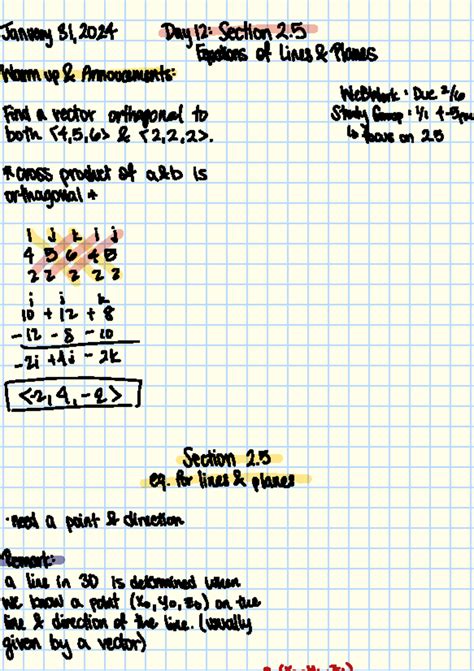 January 31, 2024
Day 12: Section 2.5
Equations of Lines & Planes
Warm up & Announcements:
WeBWork: Due 2/6
Study Group: 4-5pm
↳ focus on 2.5
Find a vector orthogonal to
both <4,5,6> & <2,2,2>.
*cross product of a&b is
orthagonal *
i j k i j
4 5 6 4 5
2 2 2 2 2
i j k
10 + 12 + 8
-12 - 8 - 10
-2i +4j - 2k
<-2, 4, -2>
Section 2.5
eq. for lines & planes
·need a point & direction
Remark:
a line in 3D is determined when
we know a point (x₀, y₀, z₀) on the
line & direction of the line. (usually
given by a vector)